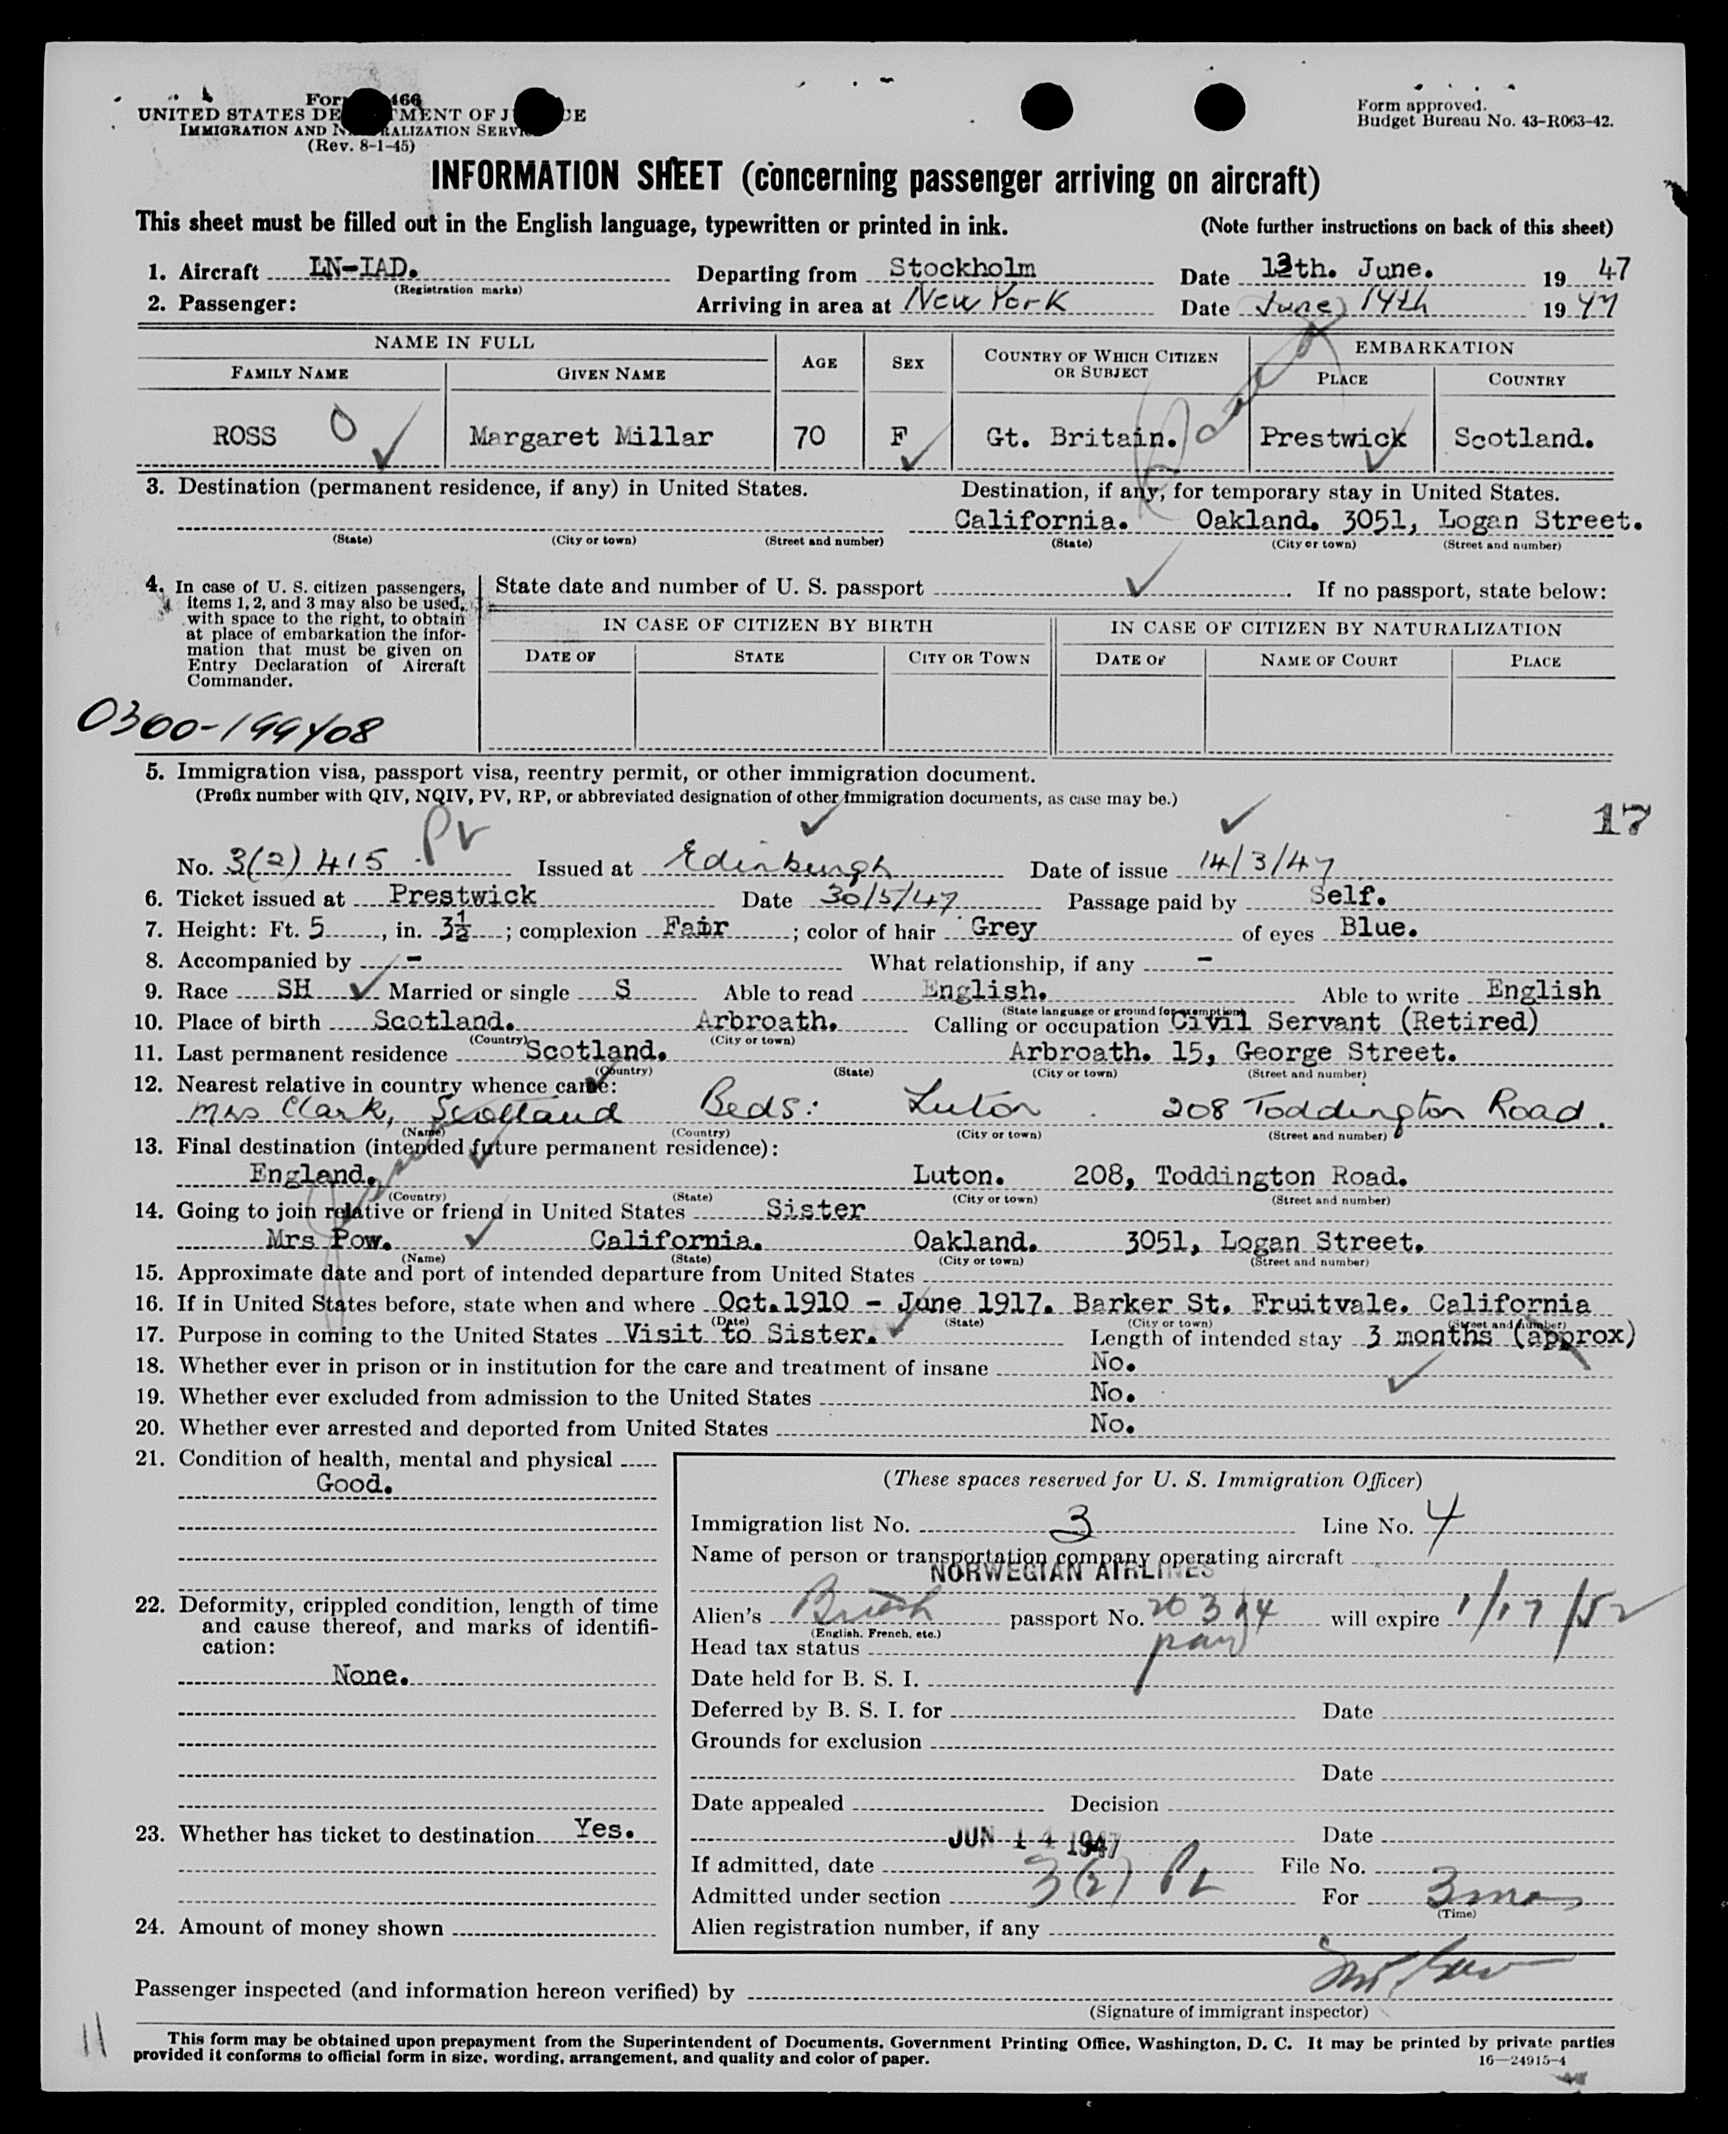 Form 466
UNITED STATES DEPARTMENT OF JUSTICE
IMMIGRATION AND NATURALIZATION SERVICE
(Rev. 8-1-45)
Form approved.
Budget Bureau No. 43-R063-42.
INFORMATION SHEET (concerning passenger arriving on aircraft)
This sheet must be filled out in the English language, typewritten or printed in ink. (Note further instructions on back of this sheet)
1. Aircraft LN-IAD. Departing from Stockholm Date 13th. June. 19 47
(Registration marks)
2. Passenger: Arriving in area at New York Date June 14th 19 47
NAME IN FULL AGE SEX COUNTRY OF WHICH CITIZEN OR SUBJECT EMBARKATION
FAMILY NAME GIVEN NAME PLACE COUNTRY
ROSS Margaret Millar 70 F Gt. Britain. Prestwick Scotland.
3. Destination (permanent residence, if any) in United States. Destination, if any, for temporary stay in United States.
California. Oakland. 3051, Logan Street.
(State) (City or town) (Street and number) (State) (City or town) (Street and number)
4. In case of U. S. citizen passengers,
items 1, 2, and 3 may also be used,
with space to the right, to obtain
at place of embarkation the infor-
mation that must be given on
Entry Declaration of Aircraft
Commander.
State date and number of U. S. passport If no passport, state below:
IN CASE OF CITIZEN BY BIRTH IN CASE OF CITIZEN BY NATURALIZATION
DATE OF STATE CITY OR TOWN DATE OF NAME OF COURT PLACE
0300-199408
5. Immigration visa, passport visa, reentry permit, or other immigration document.
(Prefix number with QIV, NQIV, PV, RP, or abbreviated designation of other immigration documents, as case may be.)
17
PV
No. 3(2) 415 Issued at Edinburgh Date of issue 14/3/47
6. Ticket issued at Prestwick Date 30/5/47 Passage paid by Self.
7. Height: Ft. 5, in. 3½; complexion Fair; color of hair Grey of eyes Blue.
8. Accompanied by - What relationship, if any -
9. Race SH Married or single S Able to read English. Able to write English
(State language or ground for exemption)
10. Place of birth Scotland. Arbroath. Calling or occupation Civil Servant (Retired)
(Country) (City or town)
11. Last permanent residence Scotland. Arbroath. 15, George Street.
(Country) (State) (City or town) (Street and number)
12. Nearest relative in country whence came:
Mrs Clark, Scotland Beds: Luton. 208 Toddington Road.
(Name) (Country) (City or town) (Street and number)
13. Final destination (intended future permanent residence):
England. Luton. 208, Toddington Road.
(Country) (State) (City or town) (Street and number)
14. Going to join relative or friend in United States Sister
Mrs Pow. California. Oakland. 3051, Logan Street.
(Name) (State) (City or town) (Street and number)
15. Approximate date and port of intended departure from United States
16. If in United States before, state when and where Oct.1910 - June 1917. Barker St. Fruitvale. California
(Date) (State) (City or town) (Street and number)
17. Purpose in coming to the United States Visit to Sister. Length of intended stay 3 months (approx)
18. Whether ever in prison or in institution for the care and treatment of insane No.
19. Whether ever excluded from admission to the United States No.
20. Whether ever arrested and deported from United States No.
21. Condition of health, mental and physical
Good.
22. Deformity, crippled condition, length of time
and cause thereof, and marks of identifi-
cation:
None.
23. Whether has ticket to destination Yes.
24. Amount of money shown
(These spaces reserved for U. S. Immigration Officer)
Immigration list No. 3 Line No. 4
Name of person or transportation company operating aircraft
NORWEGIAN AIRLINES
Alien's British passport No. will expire 1/17/52
(English, French, etc.)
Head tax status paid
Date held for B. S. I.
Deferred by B. S. I. for Date
Grounds for exclusion
Date
Date appealed Decision
JUN 14 1947 Date
If admitted, date File No.
Admitted under section 3(2) For 3 mos
(Time)
Alien registration number, if any
Passenger inspected (and information hereon verified) by
(Signature of immigrant inspector)
11
This form may be obtained upon prepayment from the Superintendent of Documents, Government Printing Office, Washington, D. C. It may be printed by private parties
provided it conforms to official form in size, wording, arrangement, and quality and color of paper.
16—24915-4